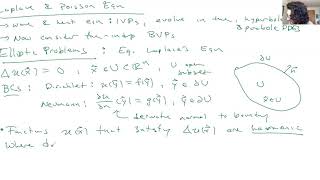 Laplace & Poisson Eqn
→ wave & heat eqn : IVPs, evolve in time, hyperbolic & parabolic PDEs
→ Now consider time-indep BVPs
Elliptic Problems : Eg. Laplace's Eqn
Δu(x⃗) = 0 , x⃗ ∈ U ⊂ ℝⁿ
U open subset
BCs : Dirichlet : u(x⃗) = f(x⃗) , x⃗ ∈ ∂U
Neumann : ∂u/∂n (x⃗) = g(x⃗) , x⃗ ∈ ∂U
↑ derivative normal to boundary
∂U
n⃗
U
x⃗ ∈ U
• Functions u(x⃗) that satisfy Δu(x⃗) are harmonic
where do